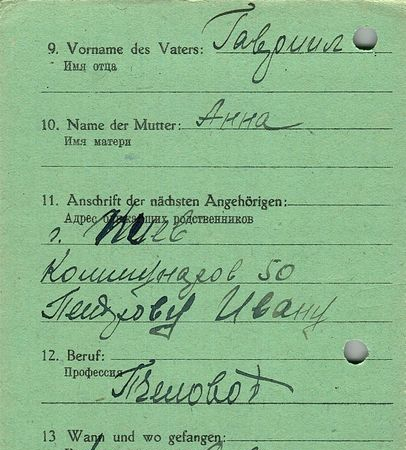 9. Vorname des Vaters: Гавриил
Имя отца
10. Name der Mutter: Анна
Имя матери
11. Anschrift der nächsten Angehörigen:
Адрес ближайших родственников
г. Киев
Коммунаров 50
Петрову Ивану
12. Beruf:
Профессия Пчеловод
13 Wann und wo gefangen: